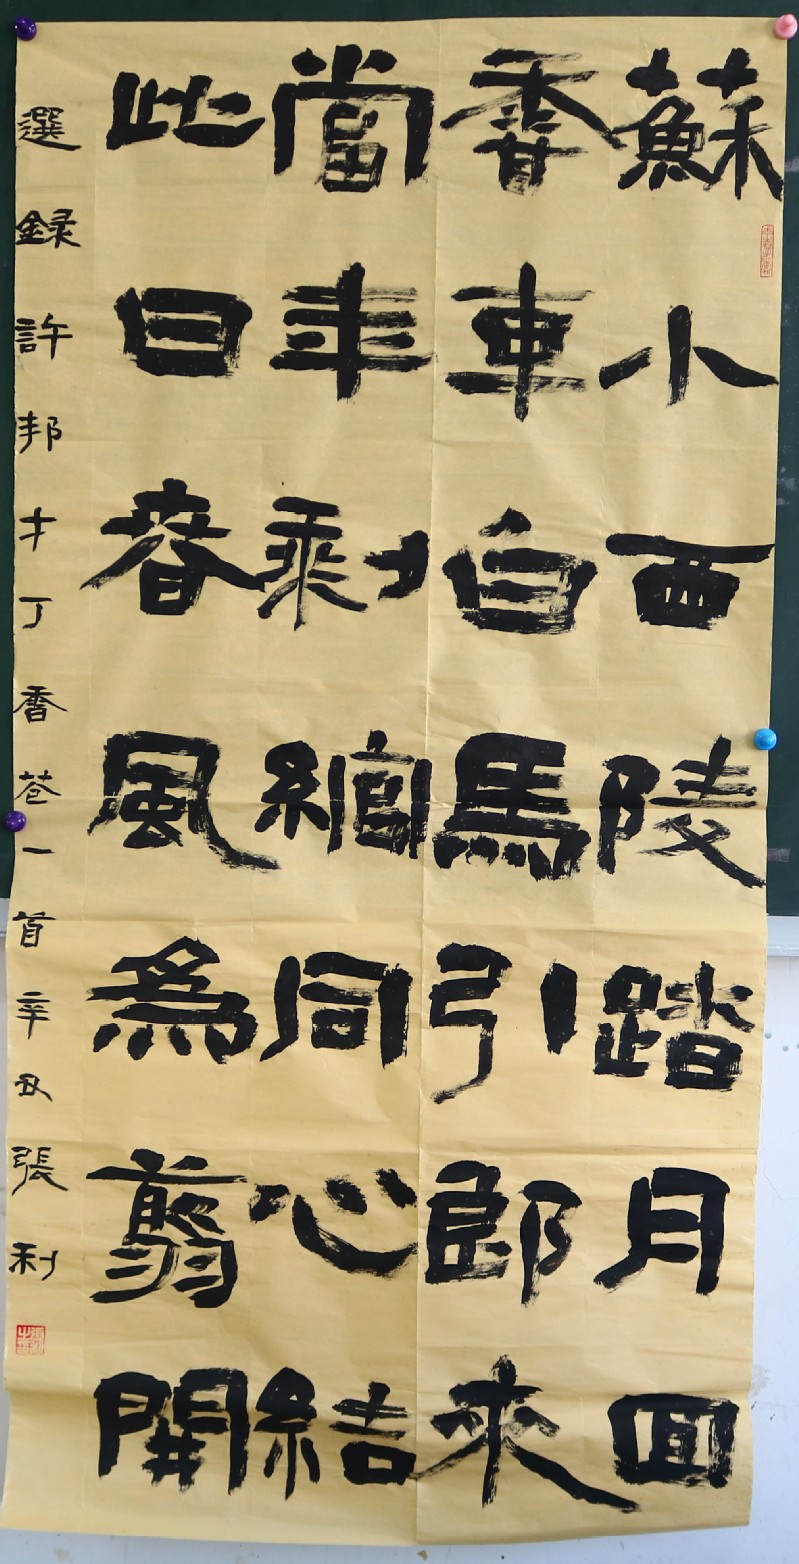 蘇小西陵踏月回
香車白馬引郎來
當年剩綰同心結
此日春風為翦開
選録許邦才丁香花一首辛丑張利